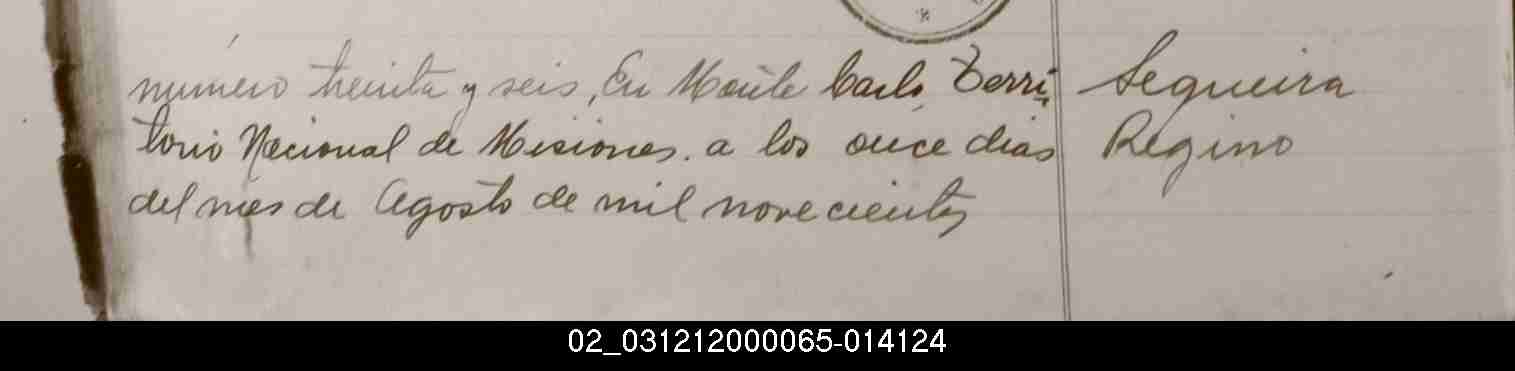 número treinta y seis, En Monte Carlo, Terri-
torio Nacional de Misiones. a los once dias
del mes de Agosto de mil novecientos
Sequeira
Regino
02_031212000065-014124